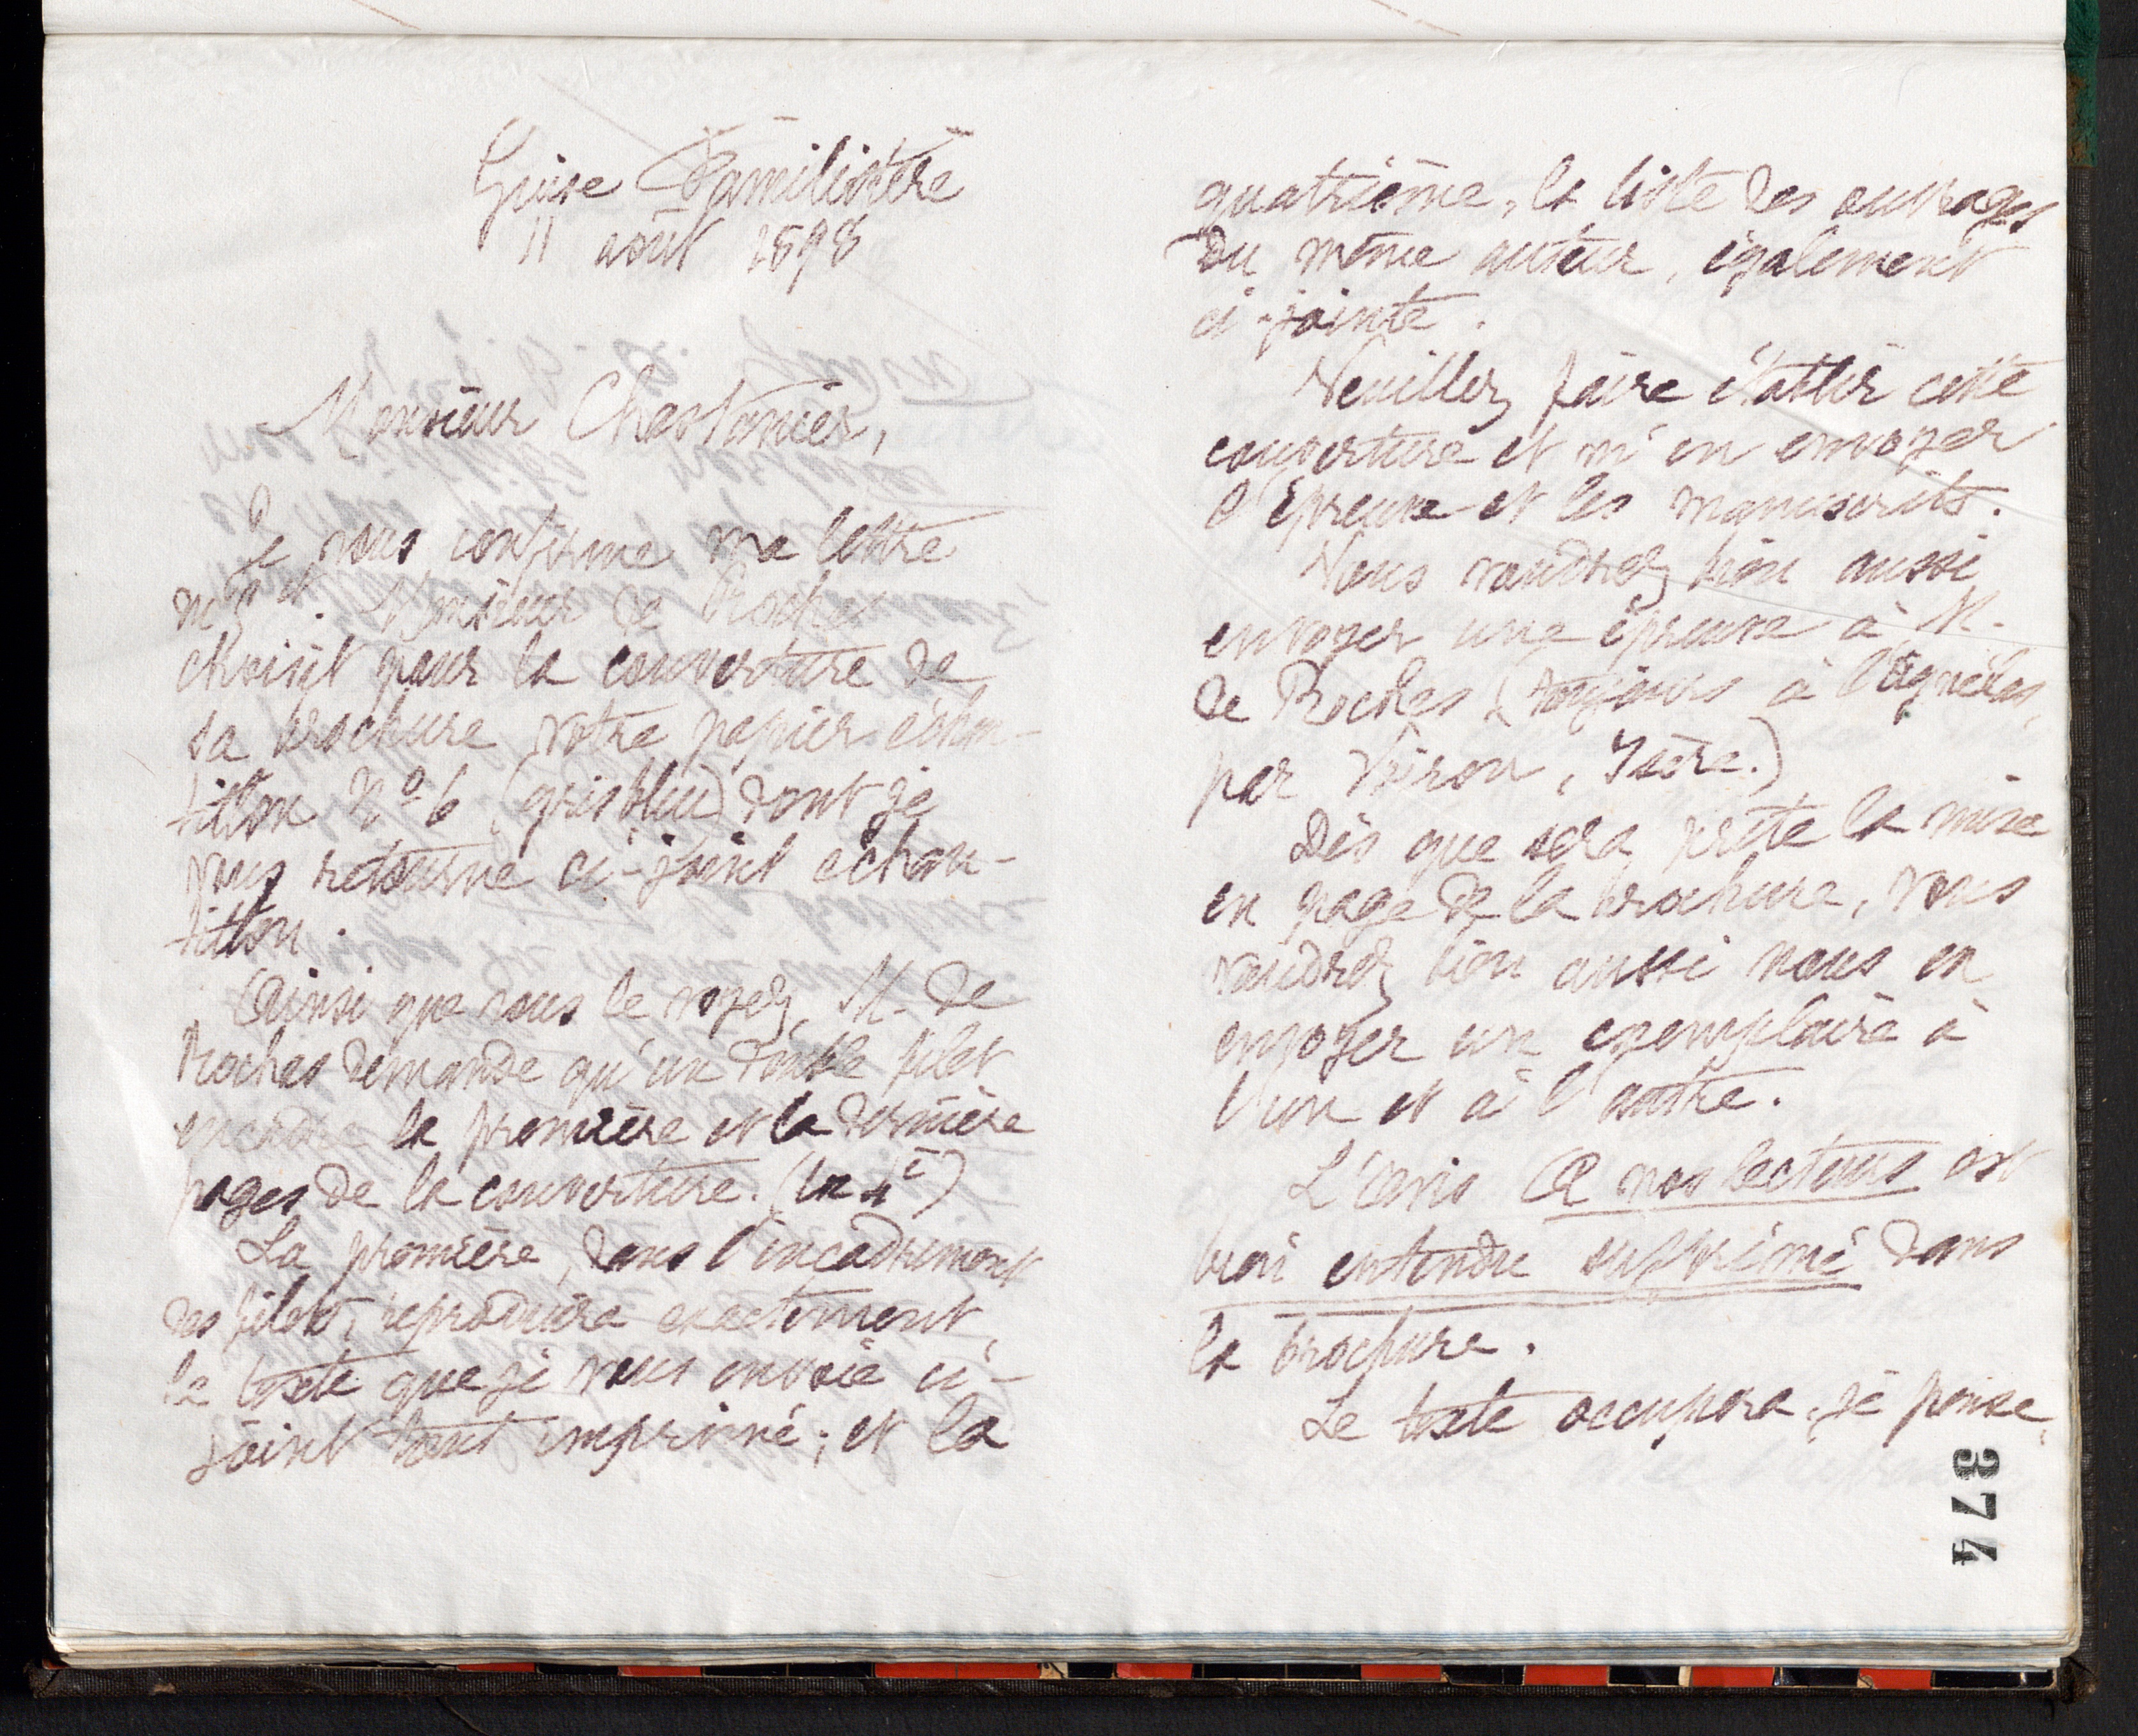 Guise Familistère
11 août 1898
Monsieur Chastanier,
Je vous confirme ma lettre
du 9 ct. Monsieur de Rochas
choisit pour la couverture de
sa brochure votre papier échan-
tillon No 6 (gris bleu) dont je
vous retourne ci-joint échan-
tillon.
Ainsi que vous le voyez, M. de
Rochas demande qu'un double filet
encadre la première et la dernière
pages de la couverture. (la 4e)
La première, dans l'encadrement
des filets, reproduira exactement
le texte que je vous envoie ci-
joint tout imprimé; et la
quatrième, la liste des ouvrages
du même auteur, également
ci-jointe.
Veuillez faire établir cette
couverture et m'en envoyer
l'épreuve et les manuscrits.
Vous voudrez bien aussi
envoyer une épreuve à M.
de Rochas (toujours à l'Agnélas,
par Voiron, Isère.)
Dès que sera prête la mise
en page de la brochure, vous
voudrez bien aussi nous en
envoyer un exemplaire à
l'un et à l'autre.
L'avis A nos lecteurs est
bien entendu supprimé dans
la brochure.
Le texte occupera, je pense,
374